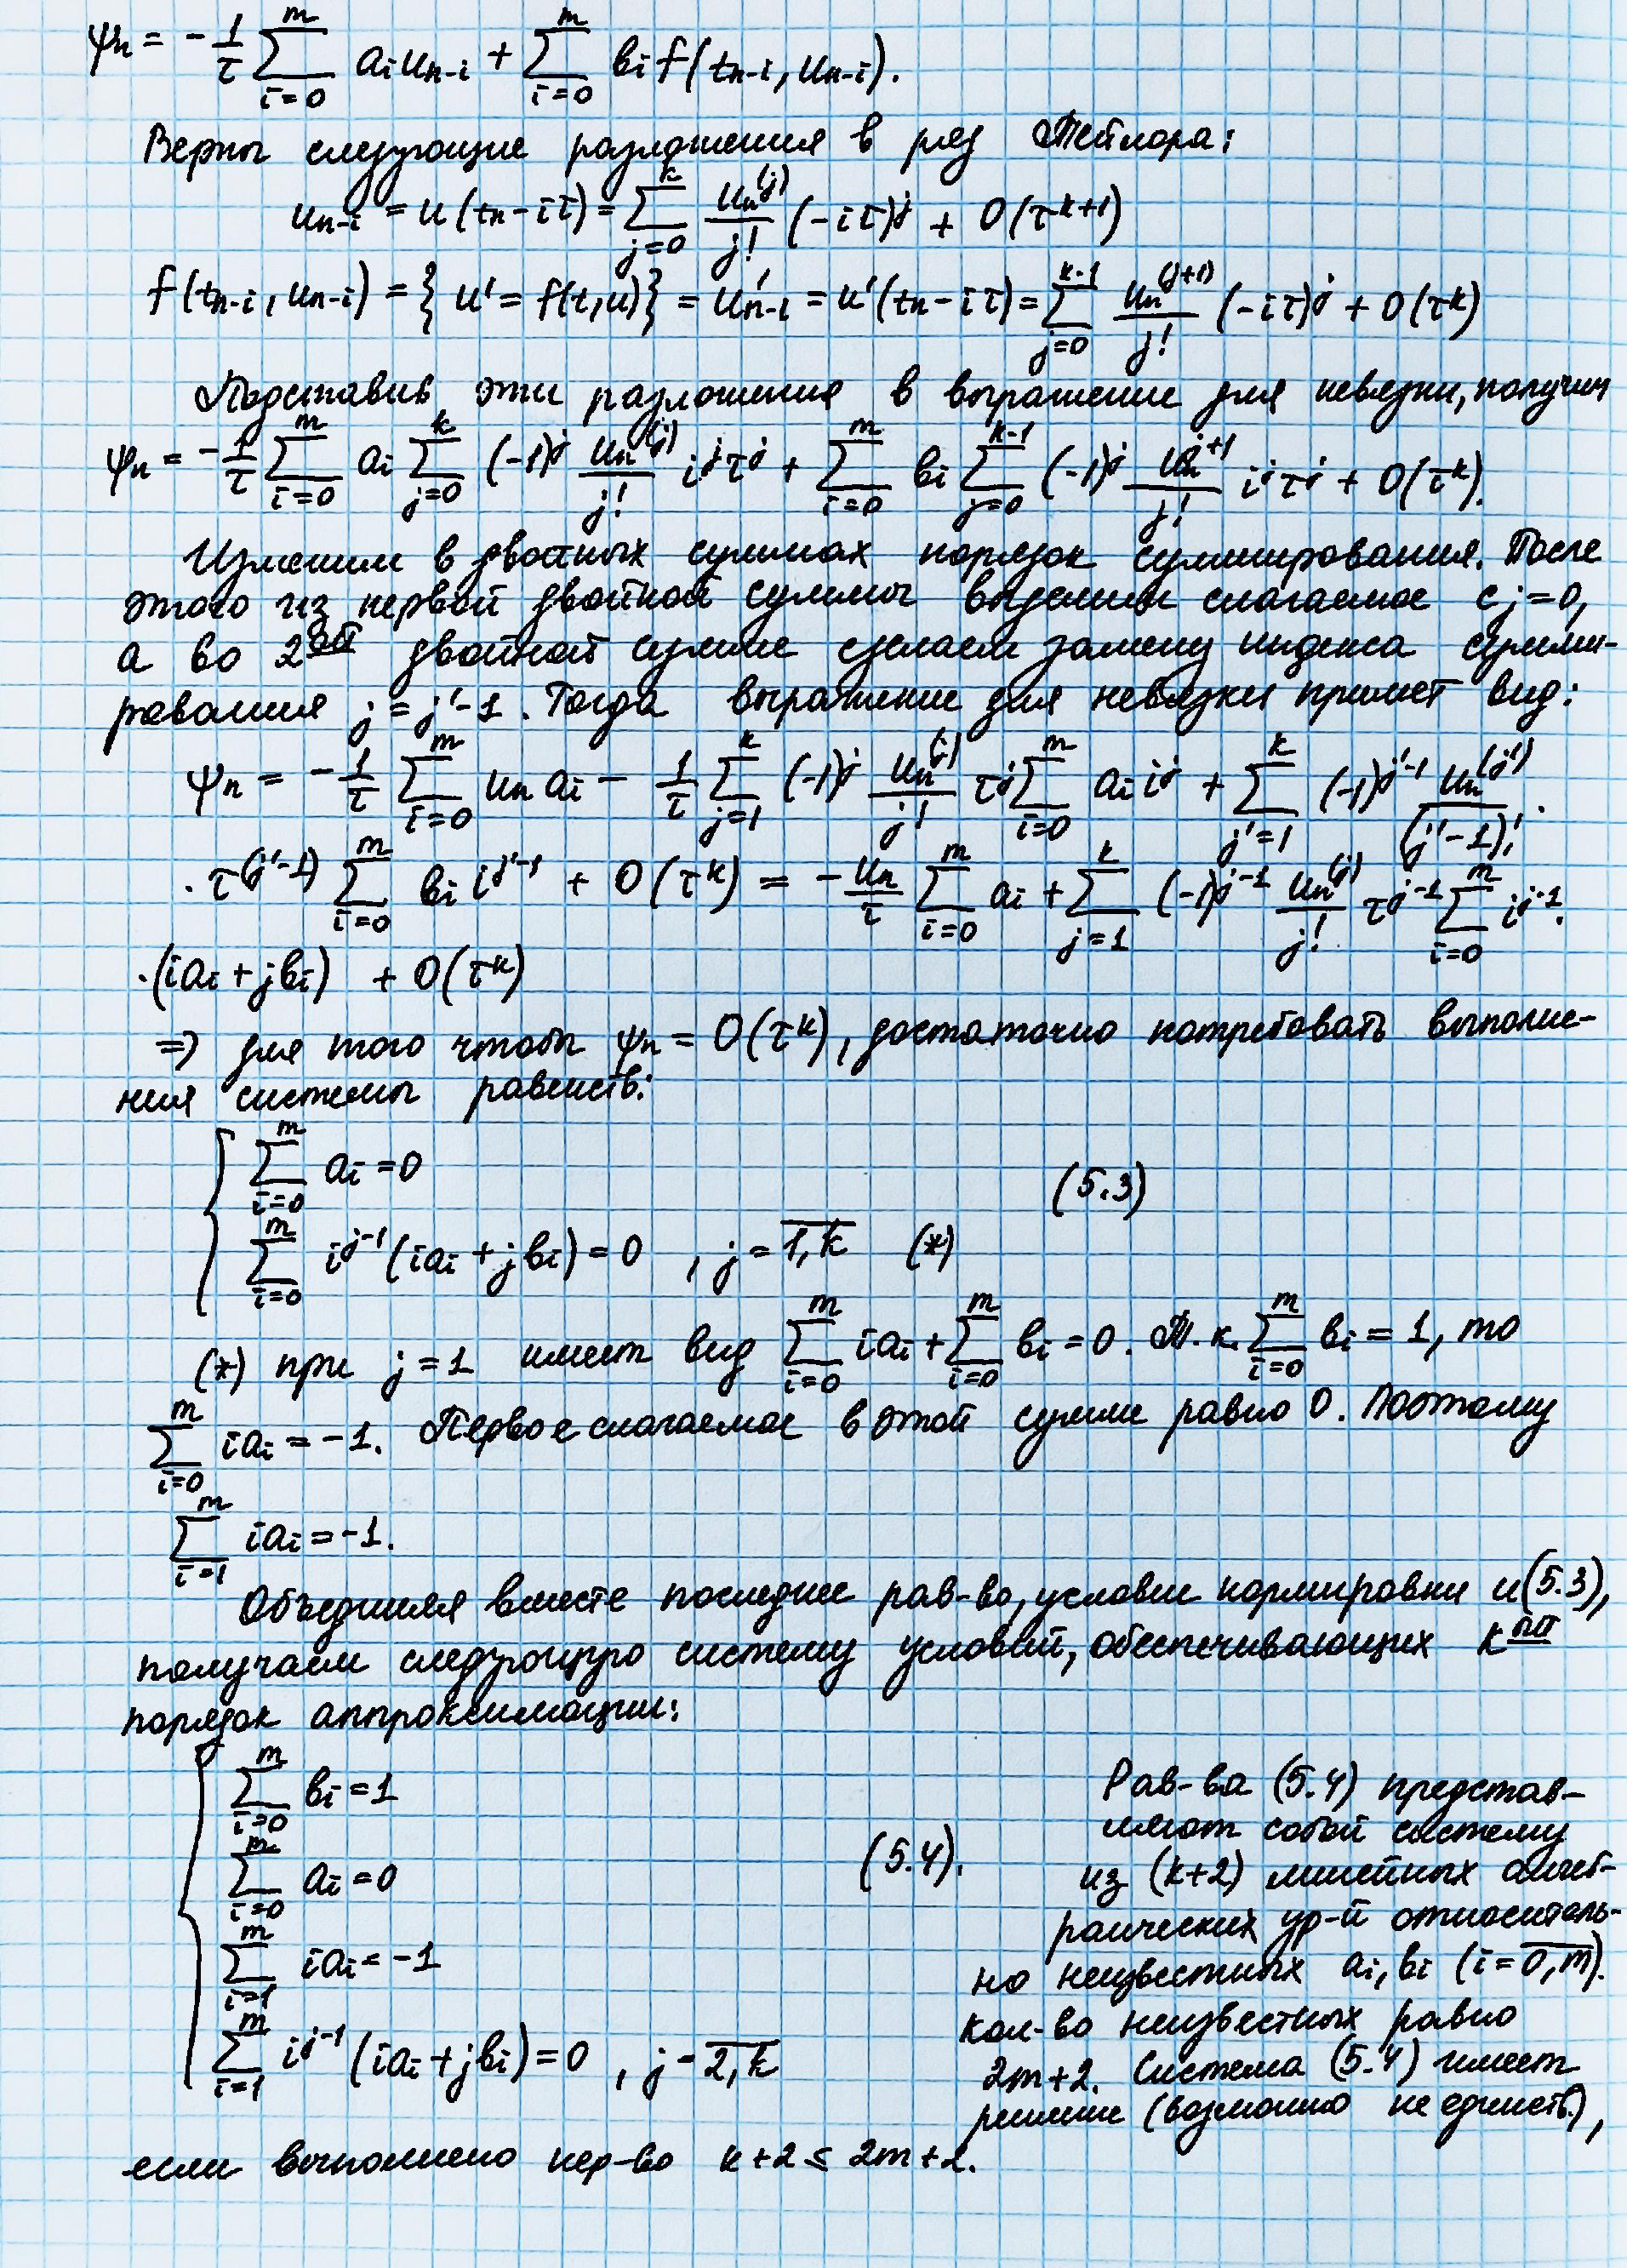 ψn = -1/τ ∑_{i=0}^{m} ai un-i + ∑_{i=0}^{m} bi f(tn-i, un-i).
Верны следующие разложения в ряд Тейлора:
un-i = u(tn-iτ) = ∑_{j=0}^{k} un^(j)/j! (-iτ)^j + O(τ^{k+1})
f(tn-i, un-i) = { u' = f(t,u)} = u'n-i = u'(tn-iτ) = ∑_{j=0}^{k-1} un^(j+1)/j! (-iτ)^j + O(τ^k)
Подставив эти разложения в выражение для невязки, получим
ψn = -1/τ ∑_{i=0}^{m} ai ∑_{j=0}^{k} (-1)^j un^(j)/j! i^j τ^j + ∑_{i=0}^{m} bi ∑_{j=0}^{k-1} (-1)^j un^{j+1}/j! i^j τ^j + O(τ^k).
Изменим в двойных суммах порядок суммирования. После
этого из первой двойной суммы выделим слагаемое с j=0,
а во 2ой двойной сумме сделаем замену индекса сумми-
рования j = j'-1. Тогда выражение для невязки примет вид:
ψn = -1/τ ∑_{i=0}^{m} un ai - 1/τ ∑_{j=1}^{k} (-1)^j un^(j)/j! τ^j ∑_{i=0}^{m} ai i^j + ∑_{j'=1}^{k} (-1)^{j'-1} un^(j')/(j'-1)! ·
· τ^(j'-1) ∑_{i=0}^{m} bi i^{j'-1} + O(τ^k) = -un/τ ∑_{i=0}^{m} ai + ∑_{j=1}^{k} (-1)^{j-1} un^(j)/j! τ^{j-1} ∑_{i=0}^{m} i^{j-1} ·
·(iai + jbi) + O(τ^k)
⇒ для того чтобы ψn = O(τ^k), достаточно потребовать выполне-
ния системы равенств:
∑_{i=0}^{m} ai = 0
(5.3)
∑_{i=0}^{m} i^{j-1}(iai + jbi) = 0 , j = 1,k (*)
(*) при j=1 имеет вид ∑_{i=0}^{m} iai + ∑_{i=0}^{m} bi = 0. Т.к. ∑_{i=0}^{m} bi = 1, то
∑_{i=0}^{m} iai = -1. Первое слагаемое в этой сумме равно 0. Поэтому
∑_{i=1}^{m} iai = -1.
Объединяя вместе последнее рав-во, условие нормировки и (5.3),
получаем следующую систему условий, обеспечивающих kый
порядок аппроксимации:
∑_{i=0}^{m} bi = 1
∑_{i=0}^{m} ai = 0
∑_{i=1}^{m} iai = -1
∑_{i=1}^{m} i^{j-1}(iai + jbi) = 0 , j = 2,k
(5.4).
Рав-ва (5.4) представ-
ляют собой систему
из (k+2) линейных алгеб-
раических ур-й относитель-
но неизвестных ai, bi (i = 0,m).
Кол-во неизвестных равно
2m+2. Система (5.4) имеет
решение (возможно не единств.),
если выполнено нер-во k+2 ≤ 2m+2.